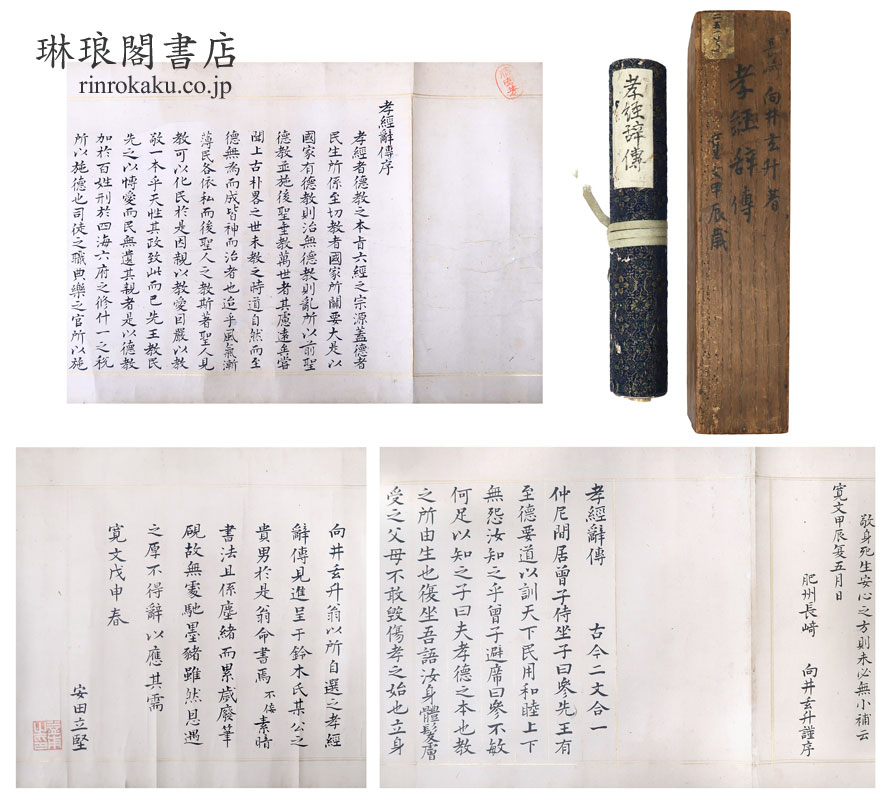 琳琅閣書店
rinrokaku.co.jp
孝經辭傳序
孝經者德教之本旨六經之宗源蓋德者
民生所係至切教者國家所關要大是以
國家有德教則治無德教則亂所以前聖
德教並施後聖垂教萬世者其慮遠矣嘗
聞上古朴畧之世未教之時道自然而至
德無為而成皆神而治者也迨乎風氣漸
薄民各依私而後聖人之教斯著聖人見
教可以化民於是因親以教愛因嚴以教
敬一本乎天性其政致此而已先王教民
先之以博愛而民無遺其親者是以德教
加於百姓刑於四海六府之修什一之稅
所以施德也司徒之職典樂之官所以施
孝經辭傳
向井玄升著
孝經辭傳
甲辰歲
敬身死生安心之方則未必無小補云
寛文甲辰夏五月日
肥州長崎 向井玄升謹序
孝經辭傳 古今二文合一
仲尼閒居曾子侍坐子曰參先王有
至德要道以訓天下民用和睦上下
無怨汝知之乎曾子避席曰參不敏
何足以知之子曰夫孝德之本也教
之所由生也復坐吾語汝身體髮膚
受之父母不敢毀傷孝之始也立身
向井玄升翁以所自選之孝經
辭傳見進呈于鈴木氏某公之
貴男於是翁命書焉不佞素暗
書法且係塵緒而累歲廢筆
硯故無處馳墨豬雖然恩遇
之厚不得辭以應其需
寛文戊申春
安田立堅